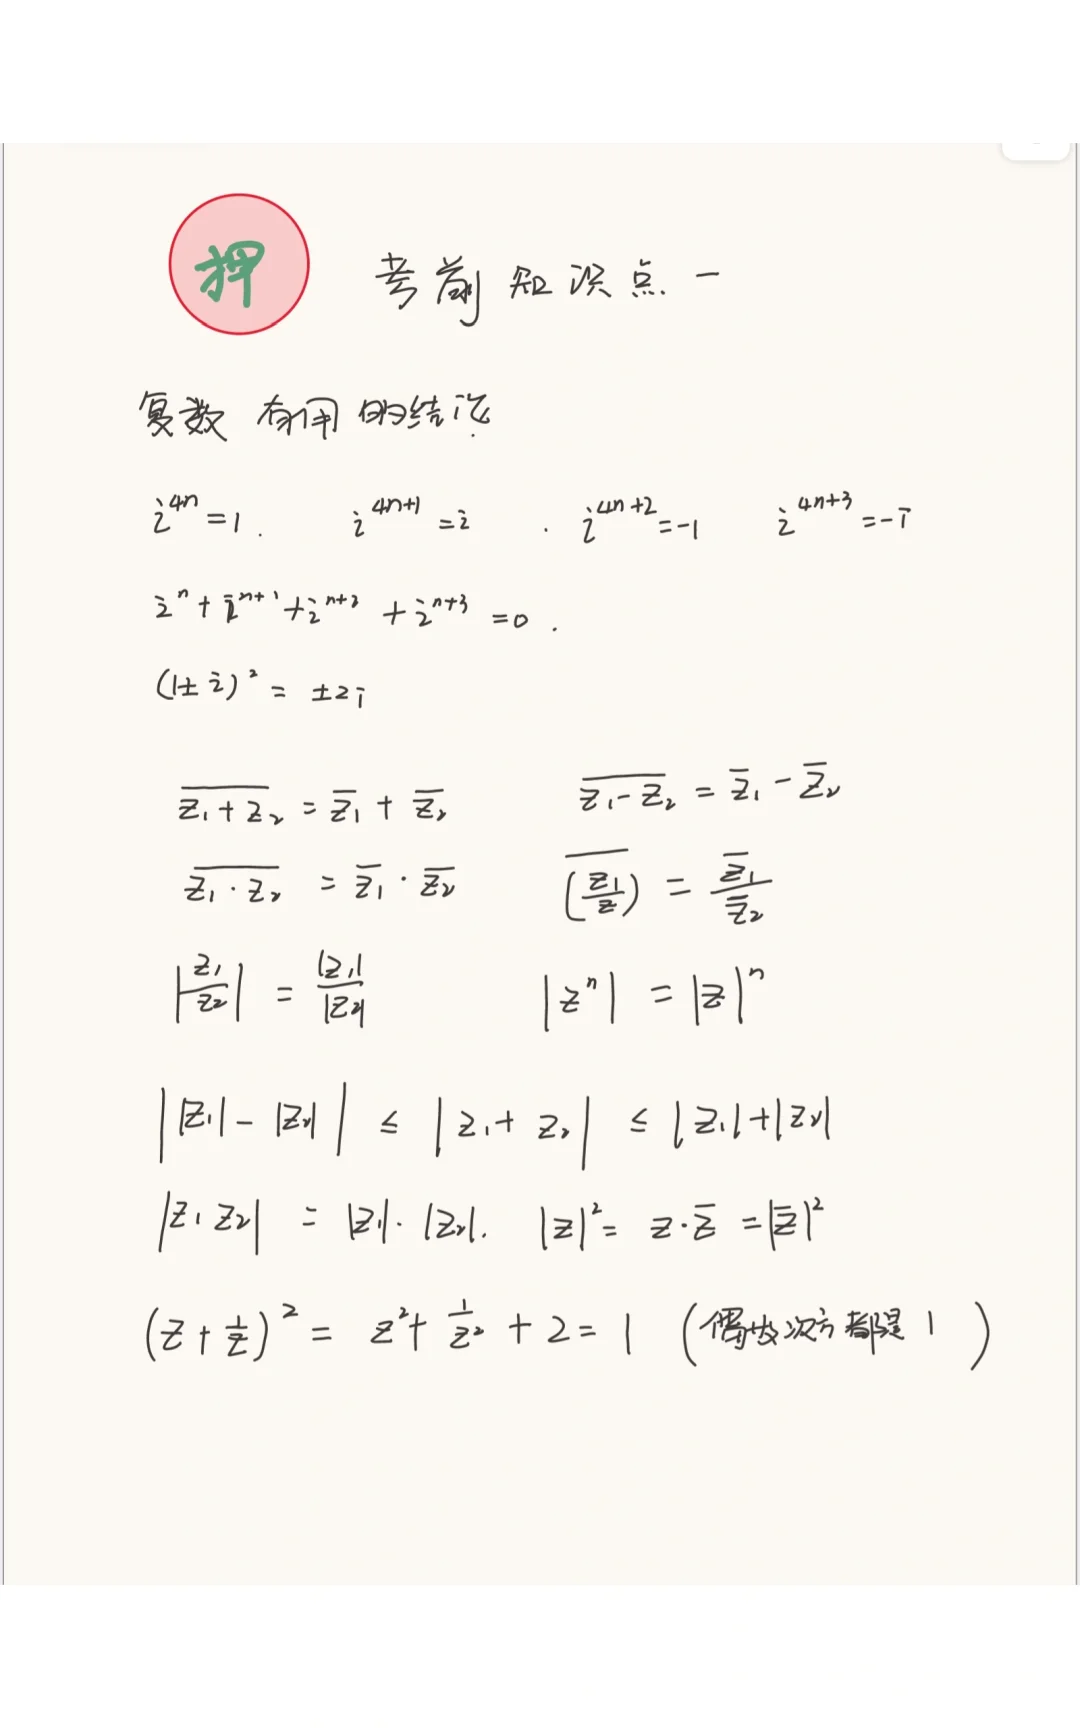 押 考前知识点一
复数 有用的结论
i⁴ⁿ=1. i⁴ⁿ⁺¹=i . i⁴ⁿ⁺²=-1 i⁴ⁿ⁺³=-i
iⁿ+iⁿ⁺¹+iⁿ⁺²+iⁿ⁺³=0.
(1±i)²=±2i
\overline{z₁+z₂}=\overline{z₁}+\overline{z₂} \overline{z₁-z₂}=\overline{z₁}-\overline{z₂}
\overline{z₁·z₂}=\overline{z₁}·\overline{z₂} \overline{(\frac{z₁}{z})}=\frac{\overline{z₁}}{\overline{z₂}}
|\frac{z₁}{z₂}|=\frac{|z₁|}{|z₂|} |zⁿ|=|z|ⁿ
||z₁|-|z₂||≤|z₁+z₂|≤|z₁|+|z₂|
|z₁z₂|=|z₁|·|z₂|. |z|²=z·\overline{z}=|\overline{z}|²
(z+\frac{1}{z})²=z²+\frac{1}{z²}+2=1 (偶数次方都是1)